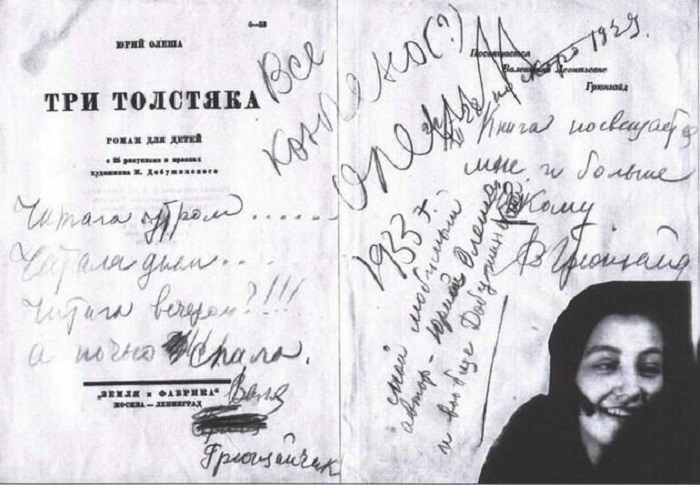 6—53
ЮРИЙ ОЛЕША
ТРИ ТОЛСТЯКА
РОМАН ДЛЯ ДЕТЕЙ
с 25 рисунками в красках
художника М. Добужинского
Читала утром......
Читала днем...
Читала вечером?!!!
а ночью спала.
„ЗЕМЛЯ и ФАБРИКА"
МОСКВА — ЛЕНИНГРАД
Валя
Грюнзайчик
Все
конечно(?)
1929.
Посвящается
Валентине Леонтьевне
Грюнзайд
Книга посвящается
мне и больше
никому
В Грюнзайд
1933 г
самый любимый
автор — Юрий Олеша
и вообще Добужинский